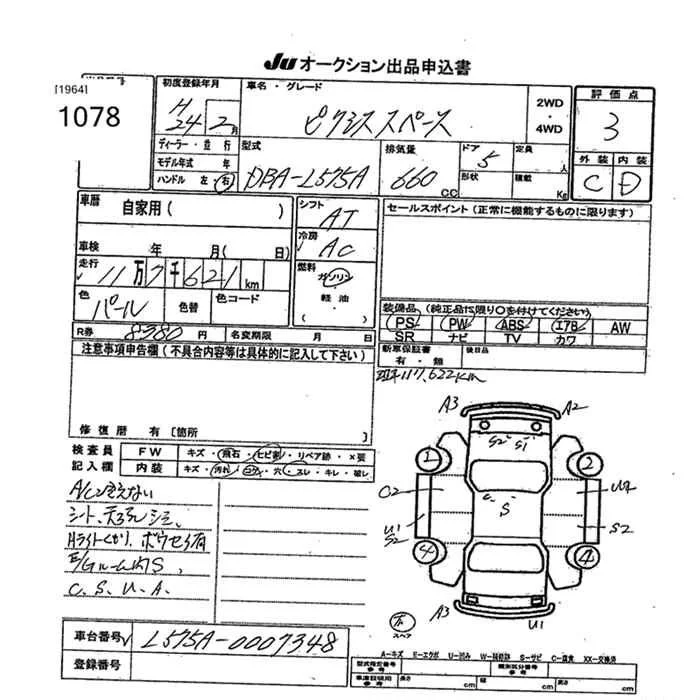 Ju オークション出品申込書
[1964]
1078
初度登録年月
車名・グレード
H
24 2月
ピクシススペース
2WD
・
4WD
評価点
3
ディーラー・並行
モデル年式 年
ハンドル 左・右
型式
DBA-L575A
排気量
660 CC
ドア
5
形状
定員
人
積載
Kg
外装 内装
C D
車歴 自家用( )
車検 年 月( 日)
走行
11万7千621km
色
パール
色替
色コード
シフト
AT
冷房
AC
燃料
ガソリン
軽油
( )
セールスポイント(正常に機能するものに限ります)
R券 8380円 名変期限 月 日
装備品(純正品に限り○を付けてください)
PS PW ABS エアB AW
SR ナビ TV カワ
新車保証書
有・無
後日品
注意事項申告欄(不具合内容等は具体的に記入して下さい)
修復歴 有〔箇所 〕
117,622km
検査員
記入欄
FW キズ・飛石・ヒビ割・リペア跡・×要
内装 キズ・汚れ・コゲ・穴・スレ・キレ・破レ
シート、天張シミ、
C. S. U. A.
A3 A2
S2 S1
1 2
C2 U2
S
U1
S2
S2
4 4
A3 U1
スペア
車台番号 L575A-0007348
登録番号
A-キズ E-エクボ U-凹み W-補修跡 S-サビ C-腐食 XX-交換済
型式指定番号
参考
類別区分番号
参考
車庫証明用
参考
長さ cm 幅 cm 高さ cm